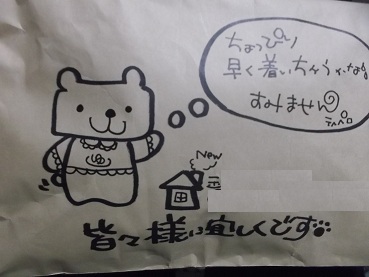 ちょっぴり
早く着いちゃうかなぁ
すみません
テヘペロ
New
皆々様に宜しくです